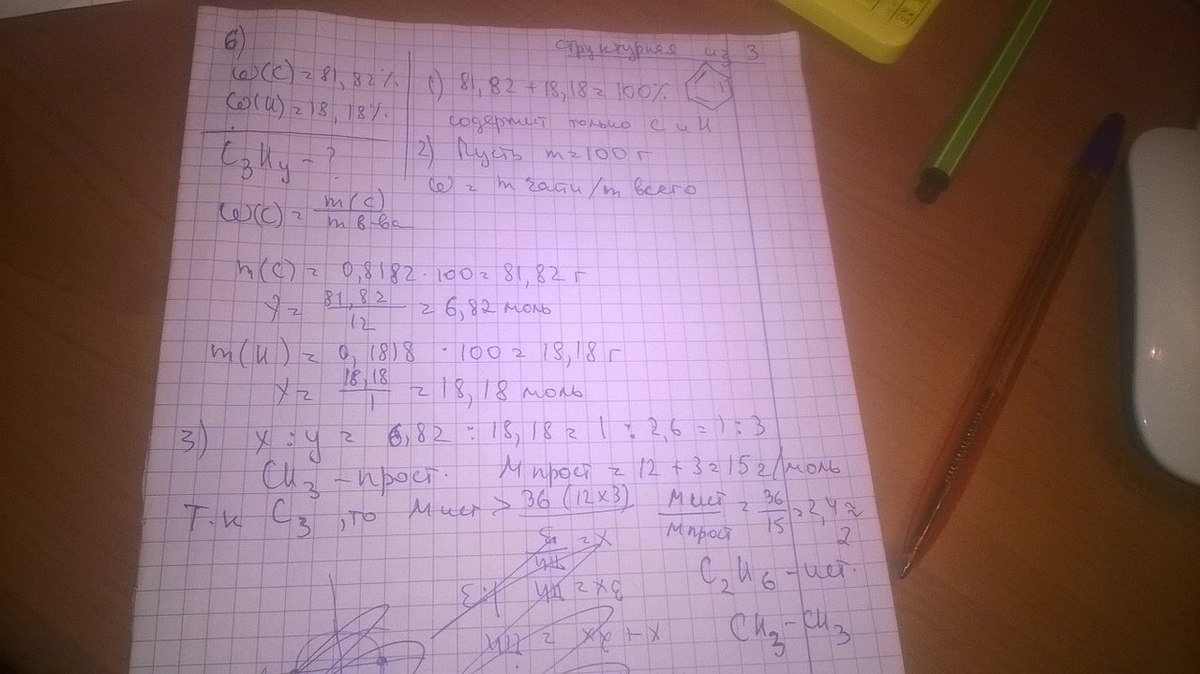 6)
структурная из 3
ω(C) = 81,82%
ω(H) = 18,18%
C₃Hy - ?
ω(C) = m(C) / m в-ва
1) 81,82 + 18,18 = 100%
содержит только C и H
2) Пусть m = 100 г
ω = m части/m всего
m(C) = 0,8182 · 100 = 81,82 г
γ = 81,82 / 12 = 6,82 моль
m(H) = 0,1818 · 100 = 18,18 г
γ = 18,18 / 1 = 18,18 моль
3) x : y = 6,82 : 18,18 = 1 : 2,6 = 1 : 3
CH₃ - прост. M прост = 12 + 3 = 15 г/моль
Т.к C₃, то M ист > 36 (12×3) M ист / M прост = 36 / 15 = 2,4 ≈
2
C₂H₆ - ист.
CH₃ - CH₃